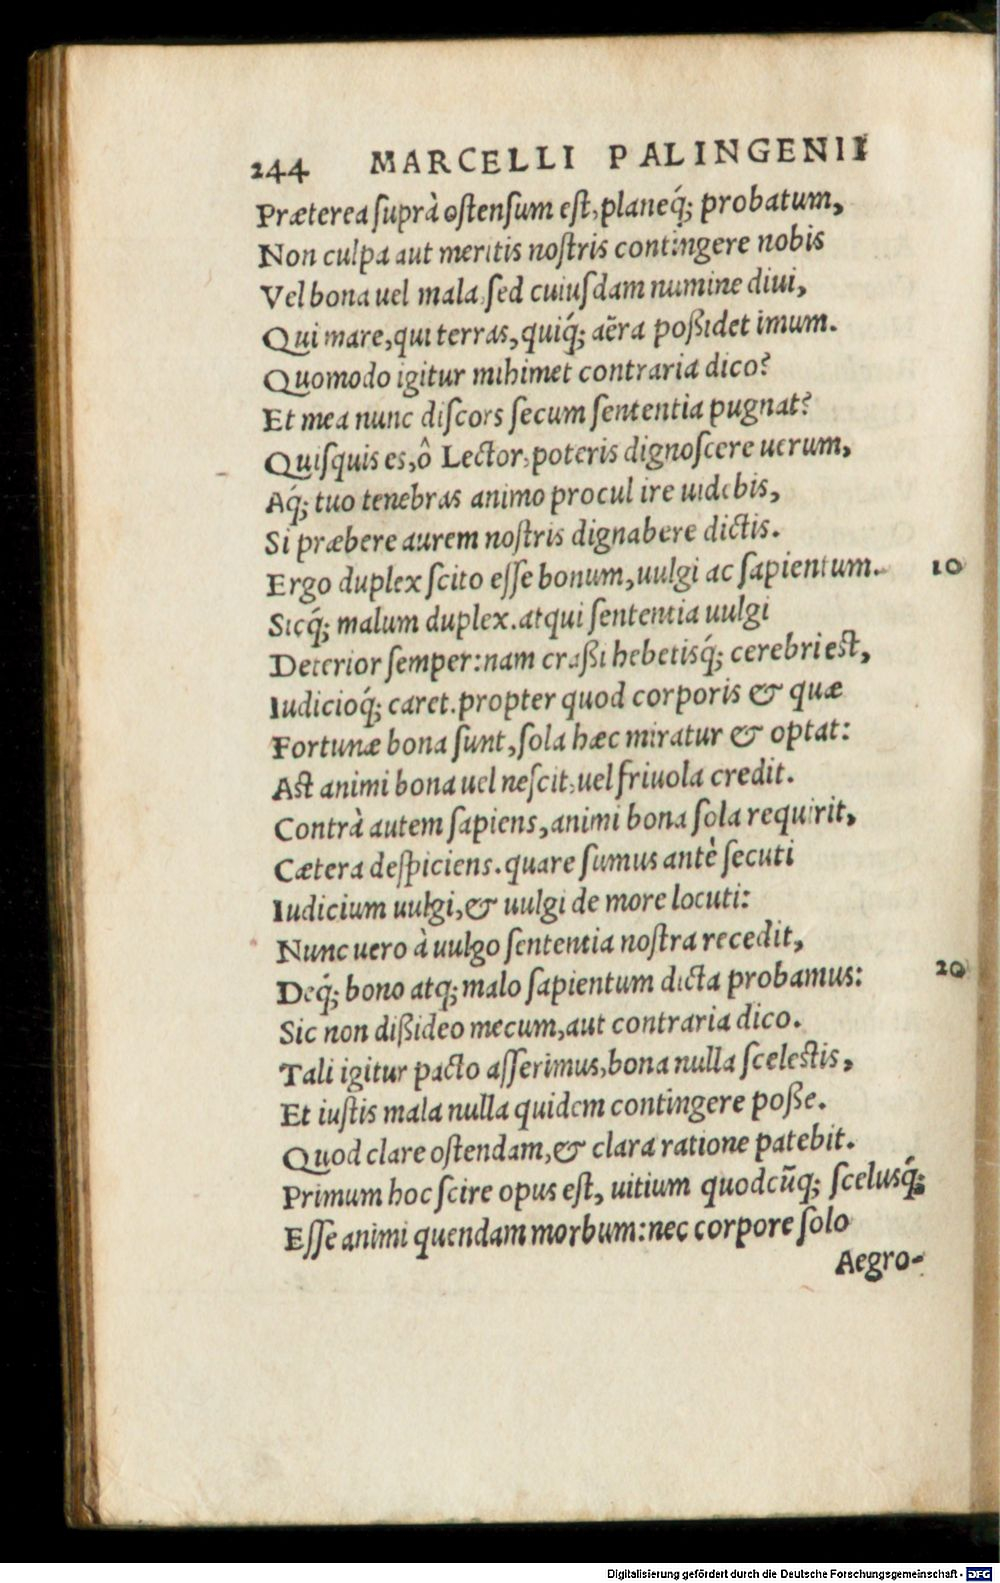 244 MARCELLI PALINGENII
Præterea suprà ostensum est, planeq́; probatum,
Non culpa aut meritis nostris contingere nobis
Vel bona uel mala, sed cuiusdam numine diui,
Qui mare, qui terras, quiq́; aëra poßidet imum.
Quomodo igitur mihimet contraria dico?
Et mea nunc discors secum sententia pugnat?
Quisquis es, ô Lector, poteris dignoscere uerum,
Aq́; tuo tenebras animo procul ire uidebis,
Si præbere aurem nostris dignabere dictis.
Ergo duplex scito esse bonum, uulgi ac sapientum. 10
Sicq́; malum duplex. atqui sententia uulgi
Deterior semper: nam craßi hebetisq́; cerebri est,
Iudicioq́; caret. propter quod corporis & quæ
Fortunæ bona sunt, sola hæc miratur & optat:
Ast animi bona uel nescit, uel friuola credit.
Contrà autem sapiens, animi bona sola requirit,
Cætera despiciens. quare sumus antè secuti
Iudicium uulgi, & uulgi de more locuti:
Nunc uero à uulgo sententia nostra recedit,
Deq́; bono atq; malo sapientum dicta probamus: 20
Sic non dißideo mecum, aut contraria dico.
Tali igitur pacto asserimus, bona nulla scelestis,
Et iustis mala nulla quidem contingere poße.
Quod clare ostendam, & clara ratione patebit.
Primum hoc scire opus est, uitium quodcūq; scelusq́;
Esse animi quendam morbum: nec corpore solo
Aegro-
Digitalisierung gefördert durch die Deutsche Forschungsgemeinschaft - DFG